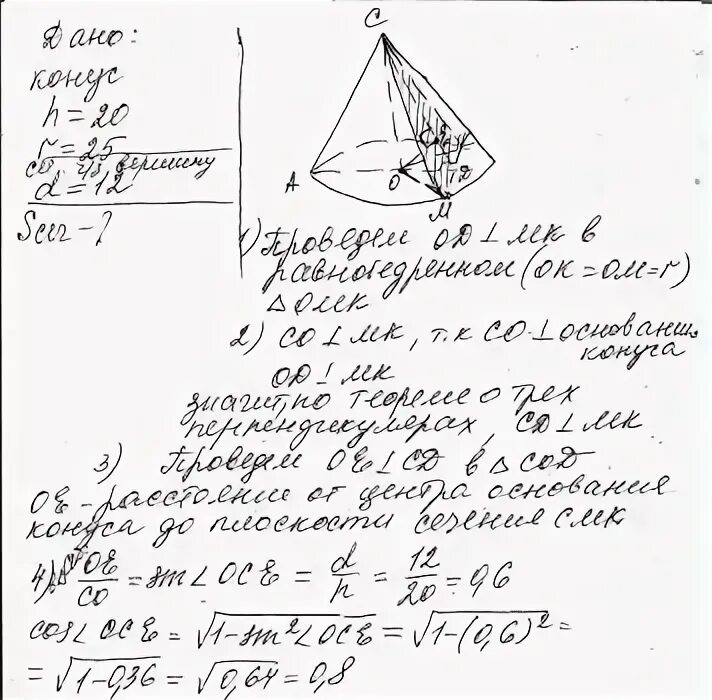 Дано:
конус
h = 20
r = 25
сеч. ч/з вершину
d = 12
Sсеч - ?
C
A
O
E
D
M
1) Проведем OD ⊥ MK в
равнобедренном (OK = OM = r)
△OMK
2) CO ⊥ MK, т.к CO ⊥ основани
конуса
OD ⊥ MK
значит, по теореме о трех
перпендикулярах, CD ⊥ MK
3) Проведем OE ⊥ CD в △COD
OE - расстояние от центра основания
конуса до плоскости сечения CMK
4) OE/CO = sin∠OCE = d/h = 12/20 = 0,6
cos∠OCE = √(1-sin²∠OCE) = √(1-(0,6)²) =
= √(1-0,36) = √(0,64) = 0,8